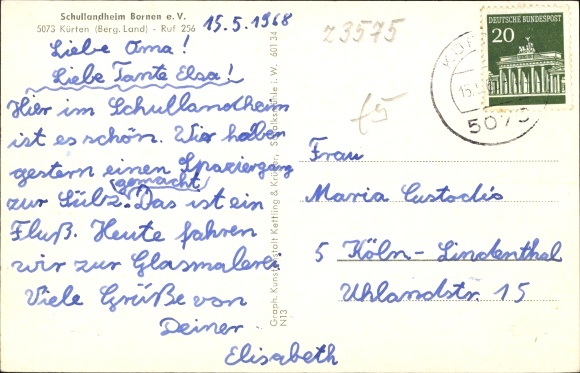 Schullandheim Bornen e. V.
5073 Kürten (Berg. Land) - Ruf 256
15.5.1968
Liebe Oma!
Liebe Tante Elsa!
Hier im Schullandheim
ist es schön. Wir haben
gestern einen Spaziergang
gemacht
zur Sülz. Das ist ein
Fluß. Heute fahren
wir zur Glasmalerei.
Viele Grüße von
Deiner
Elisabeth
Graph. Kunstanstalt Kettling & Krüger, Schalksmühle i. W. 601 34
N13
z3575
£5
DEUTSCHE BUNDESPOST
20
15.
5073
Frau
Maria Custodis
5 Köln-Lindenthal
Uhlandstr. 15